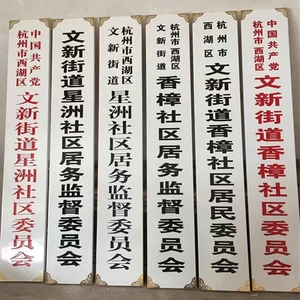 中国共产党
杭州市西湖区
文新街道星洲社区委员会
文新街道星洲社区居务监督委员会
杭州市西湖区
文新街道
星洲社区居务监督委员会
杭州市西湖区
文新街道
香樟社区居务监督委员会
杭州市
西湖区
文新街道香樟社区居民委员会
中国共产党
杭州市西湖区
文新街道香樟社区委员会